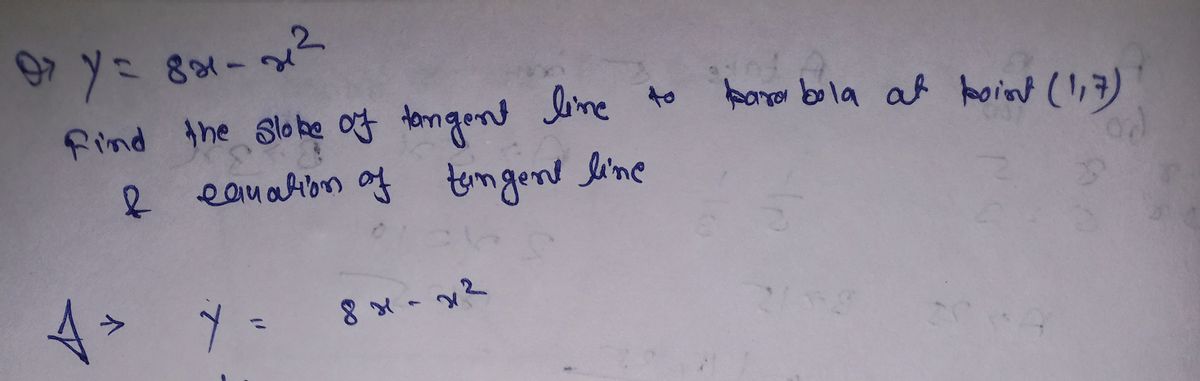 Q→ y = 8x - x²
Find the slope of tangent line to parabola at point (1,7)
& equation of tangent line
A → y = 8x - x²